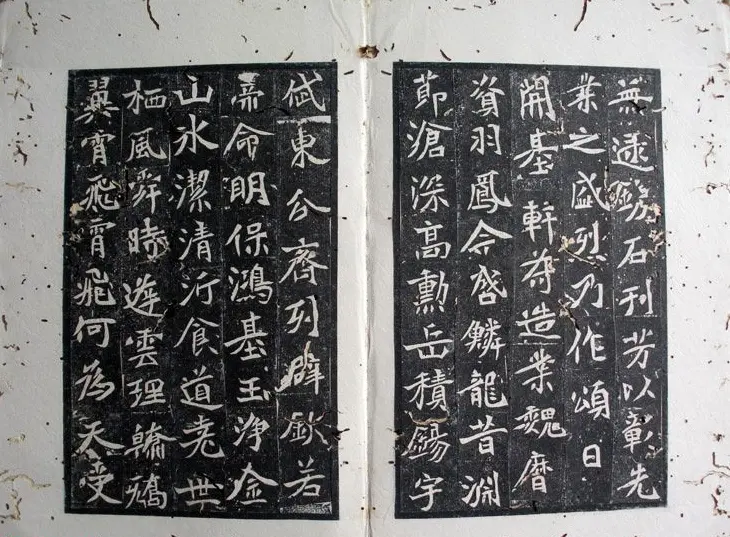 無逺鎸石刊芳以彰先
業之盛烈乃作頌曰
開基軒符造業魏曆
資羽鳳今啓鱗龍昔淵
節滄深高勳岳積錫宇
貳東公齊列辟欽若
帝命明保鴻基玉淨金
山水潔清沂食道堯世
栖風舜時遊雲理翰矯
翼霄飛霄飛何為天受